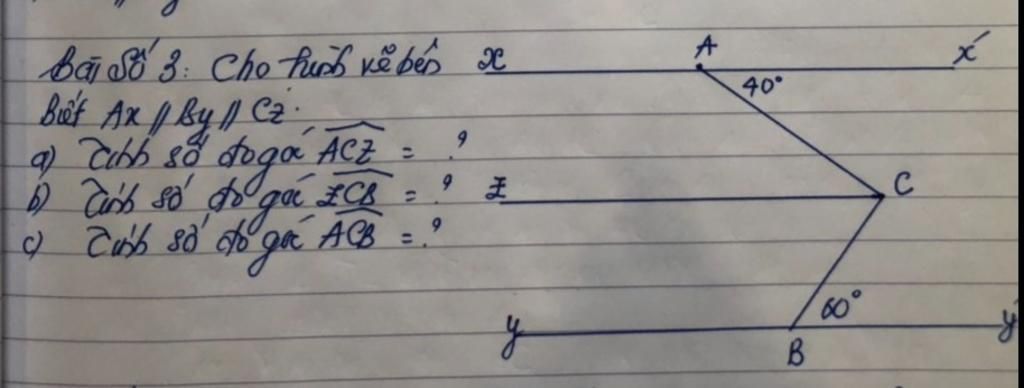 Bài Số 3: Cho hình vẽ bên
Biết Ax // By // Cz.
a) Tính số đo góc ACZ = ?
b) Tính số đo góc ZCB = ?
c) Tính số đo góc ACB = ?
x A x'
40°
z C
60°
y B y'